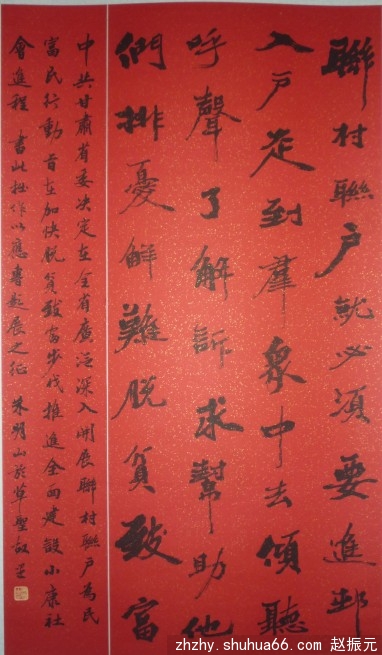 聯村聯户就必須要進邨
入户走到羣眾中去傾聽
呼聲了解訴求幫助他
們排憂解難脱貧致富
中共甘肅省委决定在全省廣泛深入開展聯村聯户為民
富民行動旨在加快脱貧致富步伐推進全面建設小康社
會進程 書此拙作以應專題展之征 朱明山於草聖故里
zhzhy.shuhua66.com 赵振元